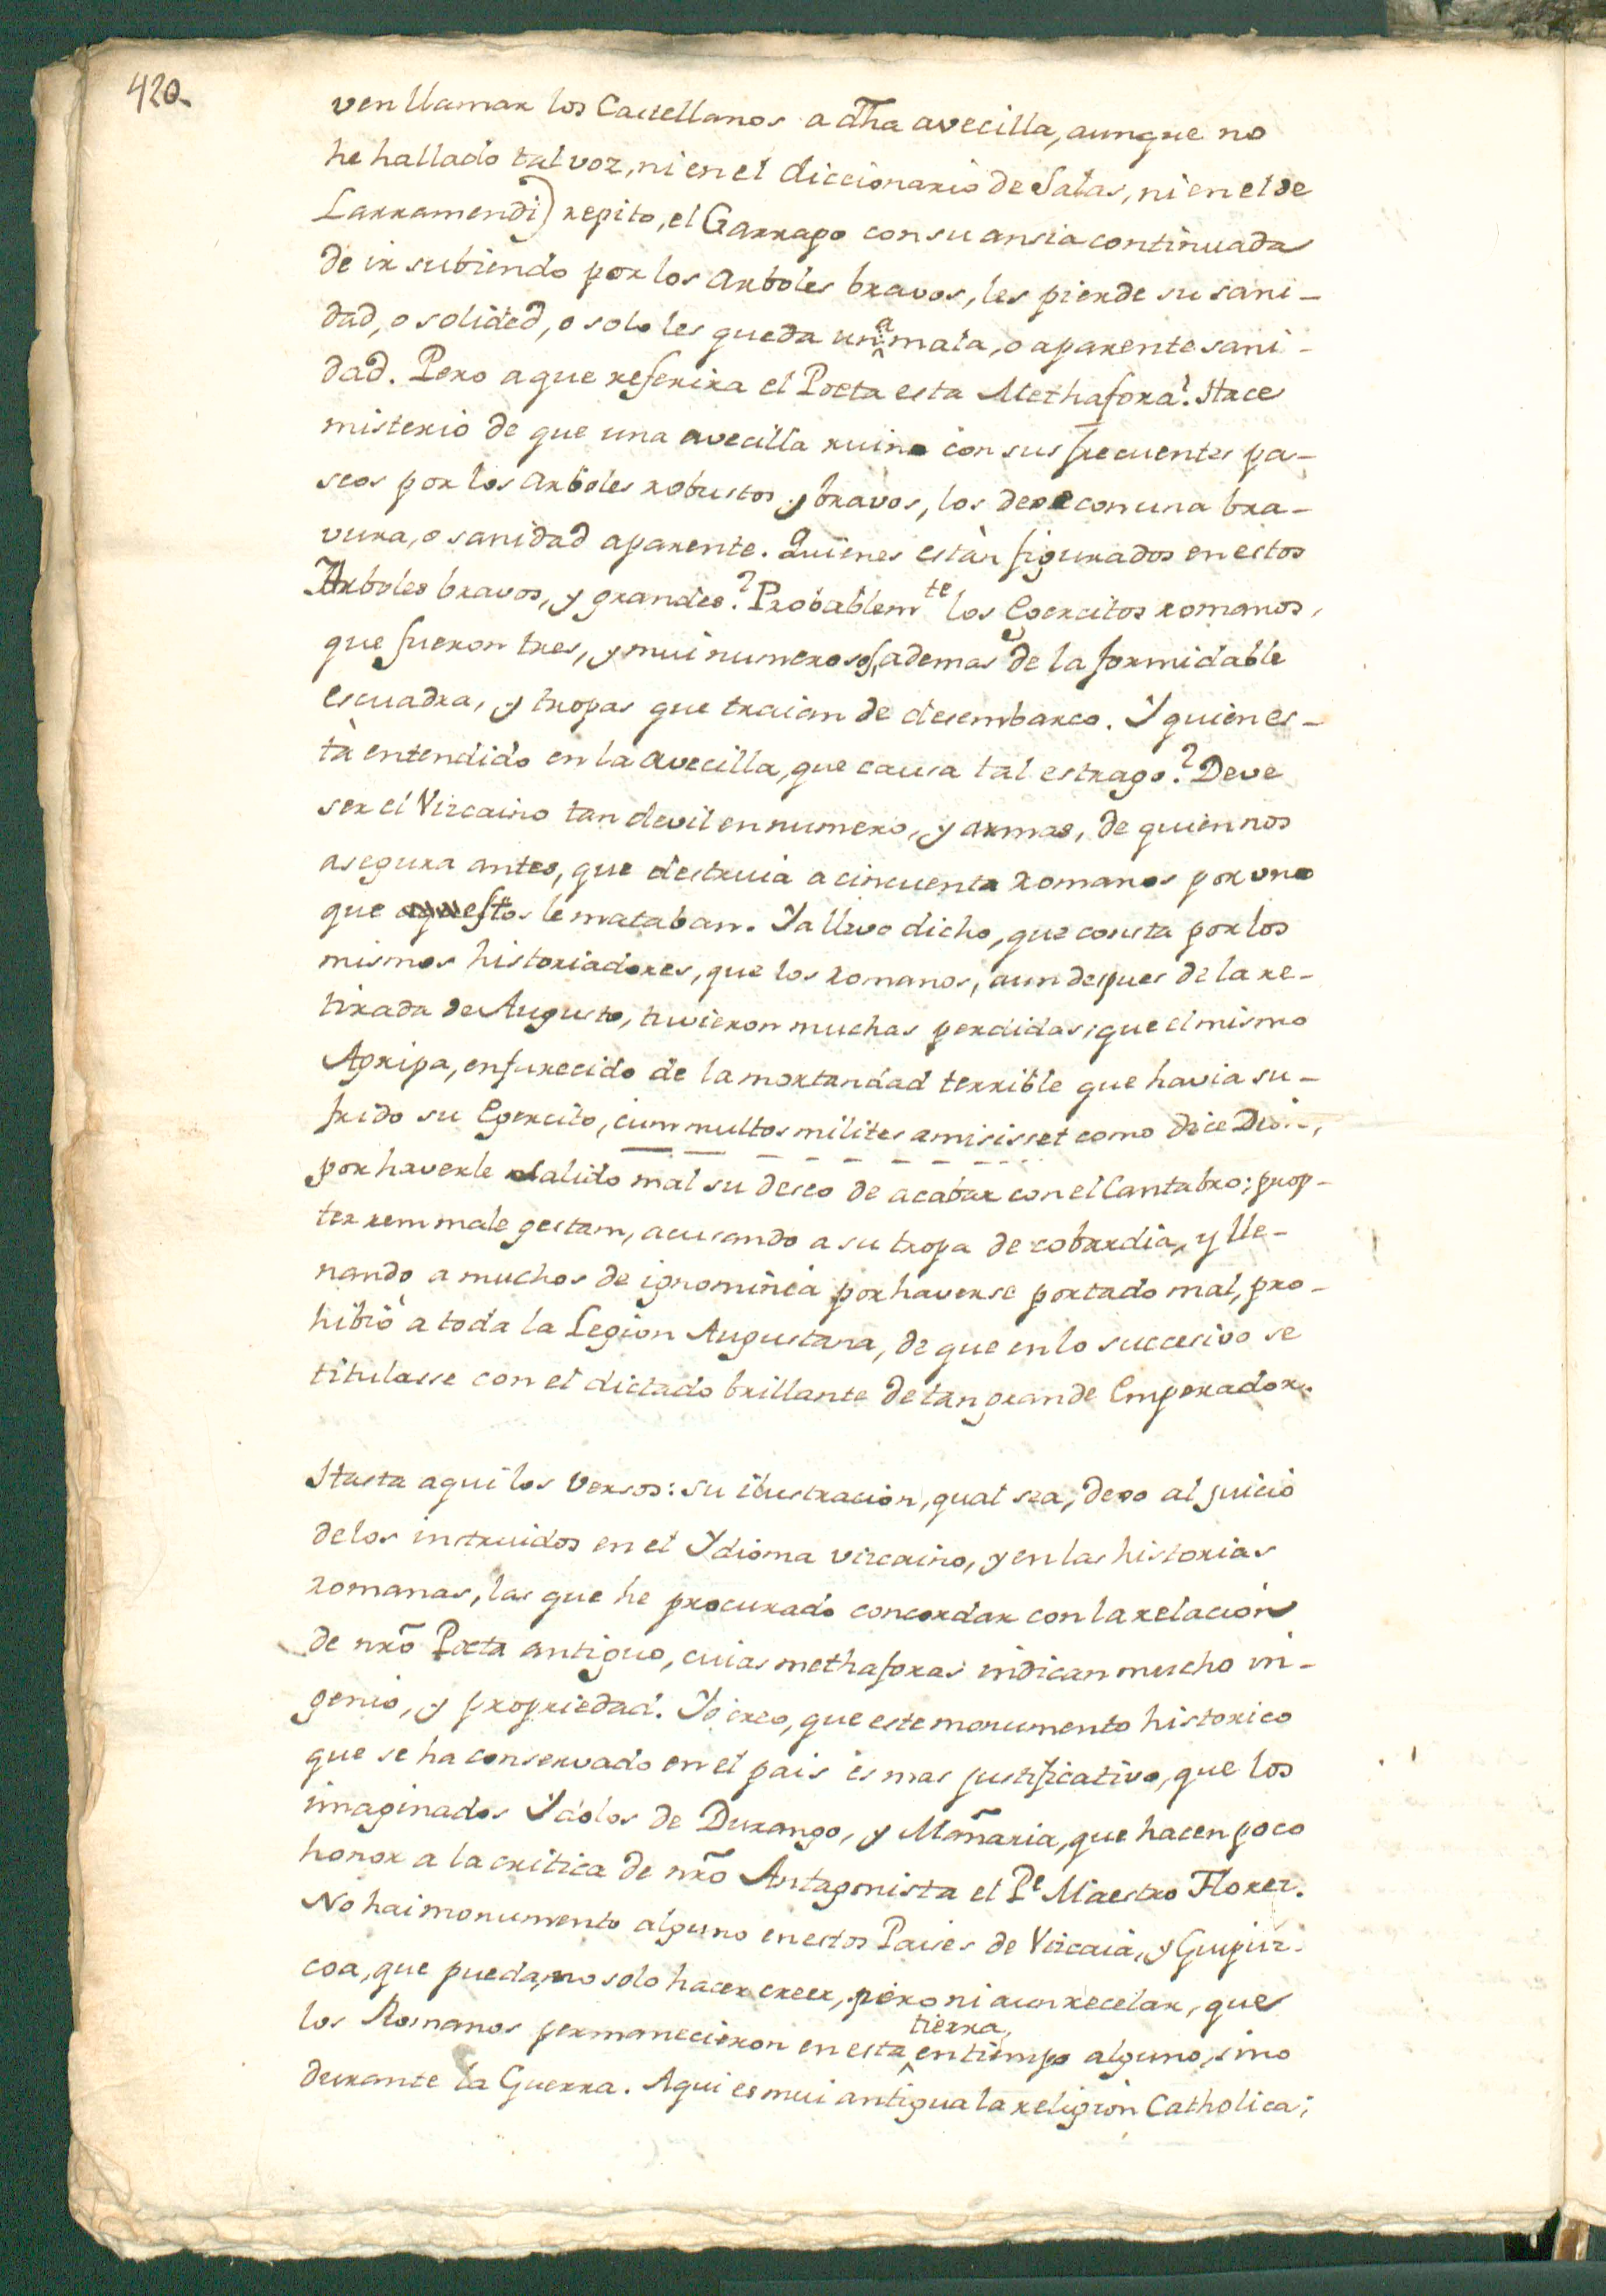 420.
ven llamar los Castellanos a dha avecilla, aunque no
he hallado tal voz, ni en el diccionario de Salas, ni en el de
Larramendi) repito, el Garrapo con su ansia continuada
de ir subiendo por los arboles bravos, les pierde su sani-
dad, o solided, o solo les queda una mala, o aparente sani-
dad. Pero a que referira el Poeta esta Methafora? Hace
misterio de que una avecilla ruina con sus frecuentes pa-
seos por los arboles robustos y bravos, los dexe con una bra-
vura, o sanidad aparente. Quienes estàn figurados en estos
Arboles bravos, y grandes? Probablemte los Egercitos romanos,
que fueron tres, y mui numerosos, ademas de la formidable
escuadra, y tropas que traian de desembarco. Y quien es-
tà entendido en la avecilla, que causa tal estrago? Deve
ser el Vizcaino tan devil en numero, y armas, de quien nos
asegura antes, que destruia a cincuenta Romanos por uno
que estos le mataban. Ya llevo dicho, que consta por los
mismos historiadores, que los Romanos, aun despues de la re-
tirada de Augusto, tuvieron muchas perdidas, que el mismo
Agripa, enfurecido de la mortandad terrible que havia su-
frido su Egercito, cum multos milites amisisset como dice Dion,
por haverle salido mal su deseo de acabar con el Cantabro; prop-
ter rem male gestam, acusando a su tropa de cobardia, y lle-
nando a muchos de ignominia por haverse portado mal, pro-
hibiò a toda la Legion Augustana, de que en lo succesivo se
titulasse con el dictado brillante de tan grande Emperador.
Hasta aqui los versos: su ilustracion, qual sea, dexo al juicio
de los instruidos en el Ydioma vizcaino, y en las historias
Romanas, las que he procurado concordar con la relacion
de nrõ Poeta antiguo, cuias methaforas indican mucho in-
genio, y propriedad. Yo creo, que este monumento historico
que se ha conservado en el pais es mas justificativo, que los
imaginados Ydolos de Durango, y Mañaria, que hacen poco
honor a la critica de nrõ Antagonista el Pe Maestro Florez.
No hai monumento alguno en estos Paises de Vizcaia, y Guipuz-
coa, que pueda, no solo hacer creer, pero ni aun recelar, que
los Romanos permanecieron en esta tierra, en tiempo alguno, sino
durante la Guerra. Aqui es mui antigua la religion Catholica;